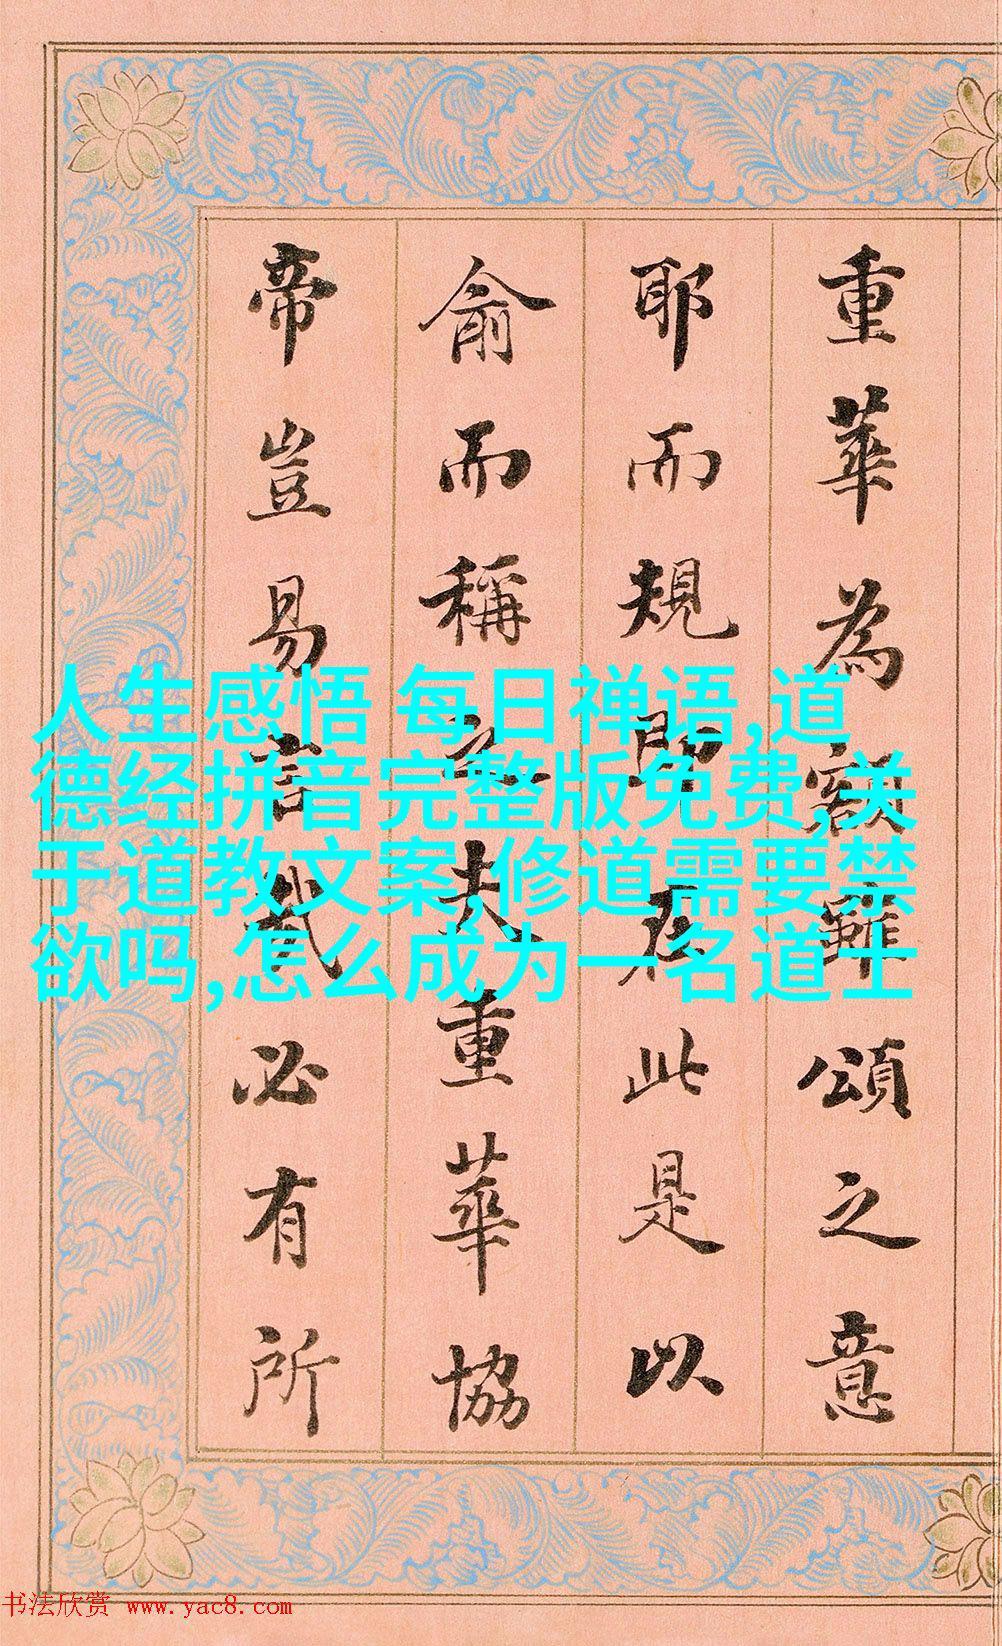 重華為額雖頌之意
耶而規即在此是以
俞而稱夫重華協
帝豈易言哉必有所
人生感悟 每日禅语,道
德经拼音完整版免费,关
于道教文案,修道需要禁
欲吗,怎么成为一名道士
书法欣赏 www.yac8.com